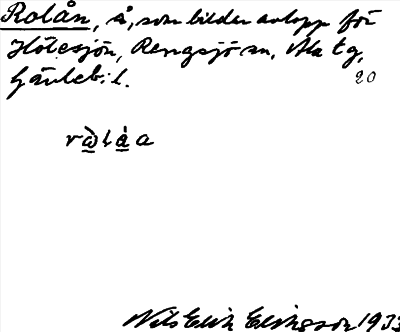 Rolån, å, som bildar avlopp för
Hötesjön, Rengsjö sn, Ala tg,
Gävleb. l. 20
ràlåa
Nils Erik Eriksson 1933